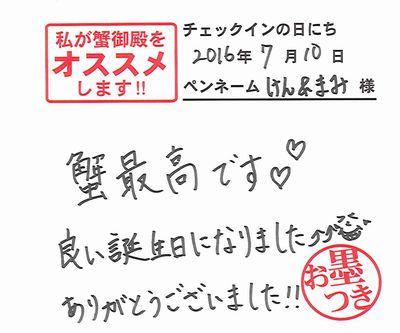 私が蟹御殿を
オススメ
します!!
チェックインの日にち
2016年7月10日
ペンネーム けん&まみ 様
蟹最高です♡♡
良い誕生日になりました
ありがとうございました!!
お墨つき